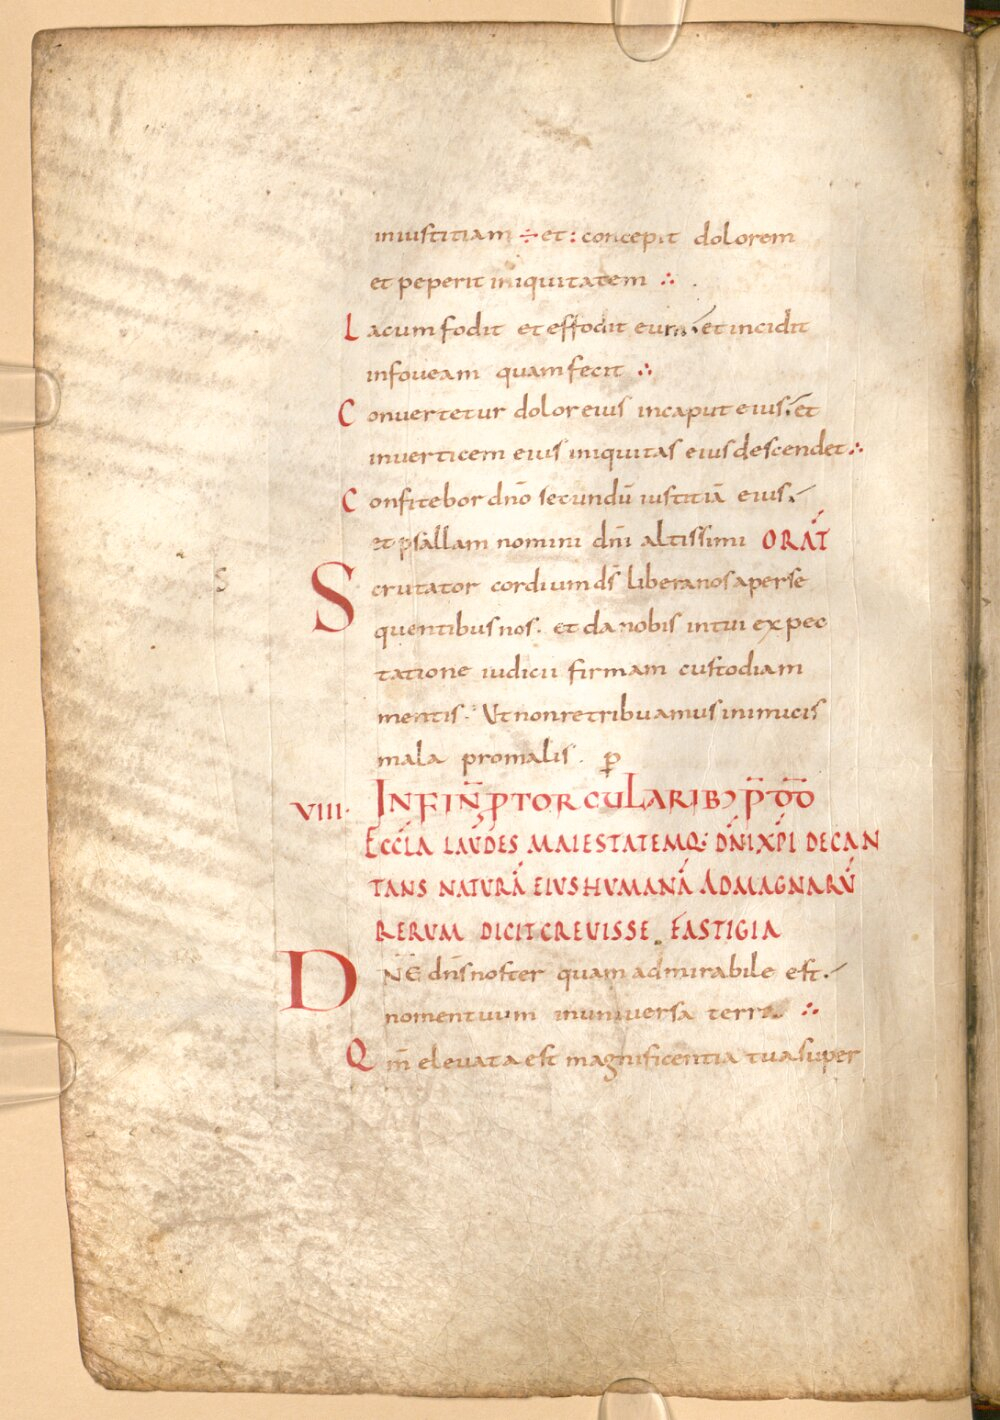 iniustitiam ÷ et : concepit dolorem
et peperit iniquitatem ∴
Lacum fodit et effodit eum et incidit
in foueam quam fecit ∴
Conuertetur dolor eius in caput eius et
in uerticem eius iniquitas eius descendet ∴
Confitebor dn̄o secundū iustitiā eius
et psallam nomini dn̄i altissimi ORAT̄
S
Scrutator cordium ds̄ libera nos a perse
quentibus nos. et da nobis intui expec
tatione iudicii firmam custodiam
mentis. Ut non retribuamus inimicis
mala pro malis. p̄
VIII· IN FIN̄ P TORCULARIB; P̄ D̄D̄
ECCL̄A LAUDES MAIESTATEMQ: DN̄I XP̄I DECAN
TANS NATURĀ EIUS HUMANĀ AD MAGNARŪ
RERUM DICIT CREUISSE FASTIGIA
DN̄E dn̄s noster quam admirabile est.
nomen tuum in uniuersa terra ∴
Qm̄ eleuata est magnificentia tua super